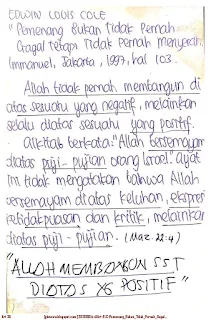 EDWIN LOUIS COLE
"Pemenang Bukan Tidak Pernah
Gagal tetapi Tidak Pernah Menyerah
Immanuel, Jakarta, 1997, hal 103.
Allah tidak pernah membangun di
atas sesuatu yang negatif, melainkan
selalu diatas sesuatu yang positif.
Alkitab berkata: "Allah bersemayam
diatas puji-pujian orang Israel". Ayat
ini tidak mengatakan bahwa Allah
bersemayam diatas keluhan, ekspresi
ketidakpuasan dan kritik, melainkan
diatas puji-pujian. (Maz 22:4)
"ALLAH MEMBANGUN SST
DIATAS YG POSITIF"